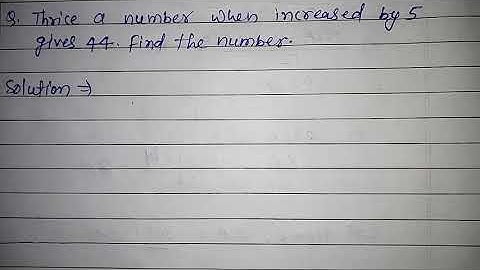 Q. Thrice a number when increased by 5
gives 44. Find the number.
Solution ⇒